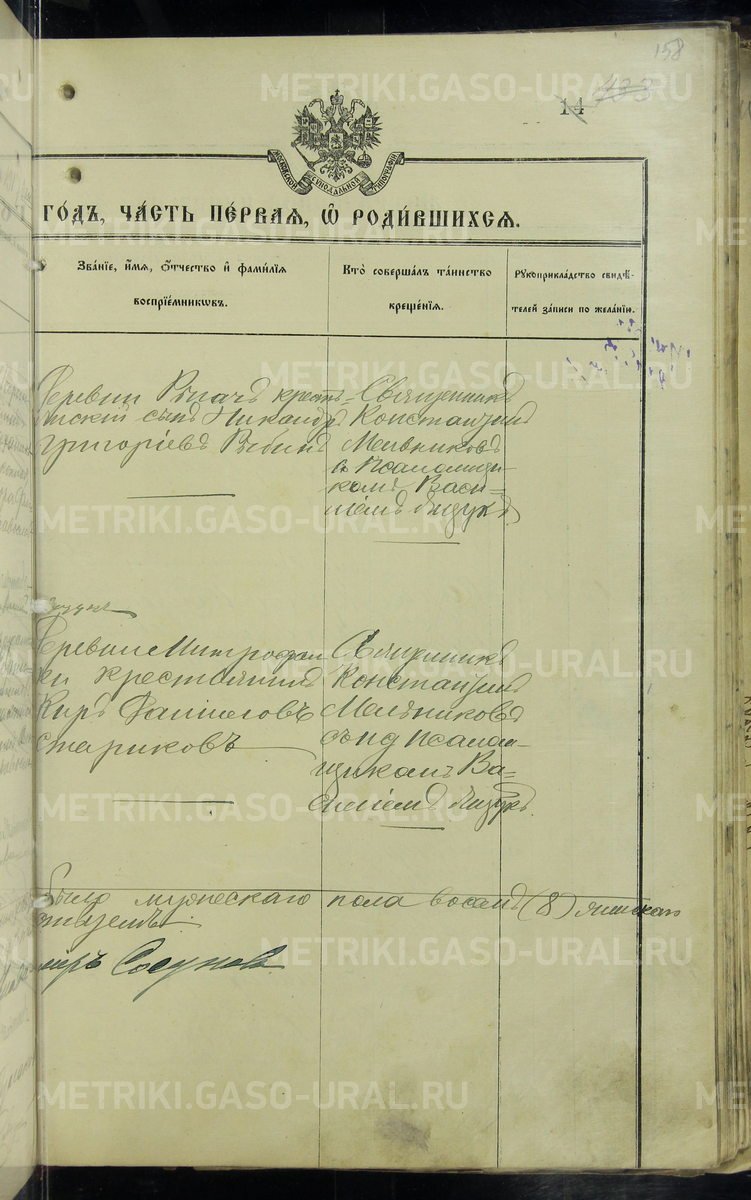 158
14 433
МОСКОВСКОЙ СѴНОДАЛЬНОЙ ТИПОГРАФІИ
ГО́ДЪ, ЧА́СТЬ ПЕ́РВАЯ, Ѡ҆ РОДИ́ВШИХСЯ.
Зва́нїе, и҆́мя, ѻ҆́тчество и҆ фами́лїя
воспрїе́мниковъ.
Кто̀ соверша́лъ та́инство
креще́нїя.
Рꙋкоприкла́дство свидѣ́-
телей за́писи по жела́нїю.
Деревни крестъ-
янскій сынъ Никандръ
Григоріевъ
Священникъ
Константинъ
Мельниковъ
съ Псаломщи-
комъ Васи-
ліемъ
Деревни Митрофан
ки крестьянинъ
Киръ Даниловъ
Стариковъ
Священникъ
Константинъ
Мельниковъ
съ Псалом-
щикомъ Ва-
силіемъ
было мужескаго пола восемь (8) женскаго
Сосуновъ
METRIKI.GASO-URAL.RU